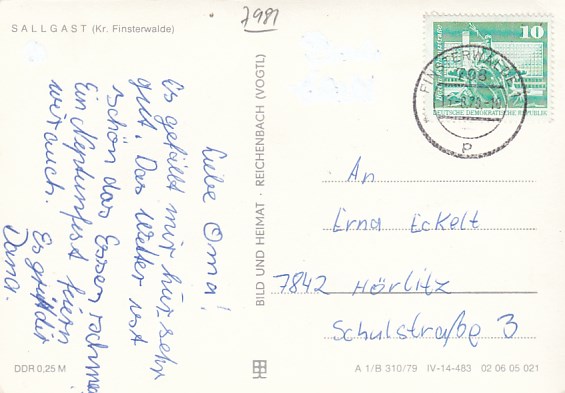 7991
SALLGAST (Kr. Finsterwalde)
Liebe Oma!
Es gefällt mir hir sehr
gut. Das Wetter ist
schön das Essen
Ein Neptunfest feiern
wir auch. Es grüßt dir
Dana.
BILD UND HEIMAT · REICHENBACH (VOGTL)
10
DEUTSCHE DEMOKRATISCHE REPUBLIK
FINSTERWALDE 1
P
An
Erna Eckelt
7842 Hörlitz
Schulstraße 3
DDR 0,25 M
A 1/B 310/79 IV-14-483 02 06 05 021